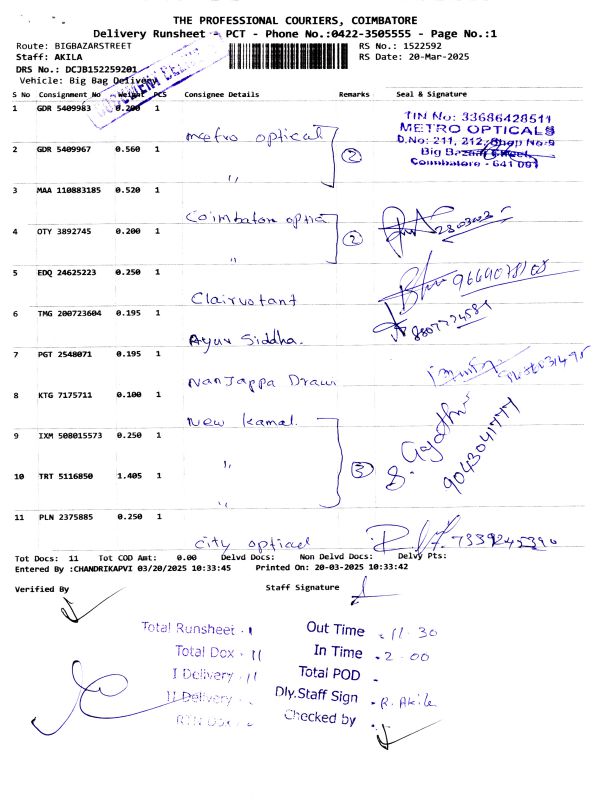 THE PROFESSIONAL COURIERS, COIMBATORE
Delivery Runsheet - PCT - Phone No.:0422-3505555 - Page No.:1
Route: BIGBAZARSTREET RS No.: 1522592
Staff: AKILA RS Date: 20-Mar-2025
DRS No.: DCJB152259201
Vehicle: Big Bag Delivery
S No Consignment No Weight PCS Consignee Details Remarks Seal & Signature
1 GDR 5409983 0.200 1
metro optical
TIN No: 33686428511
METRO OPTICALS
D.No: 211, 212, Shop No:9
Big Bazaar Street,
Coimbatore - 641 001
2 GDR 5409967 0.560 1
" 2
3 MAA 110883185 0.520 1
Coimbatore optical
4 OTY 3892745 0.200 1
" 2
5 EDQ 24625223 0.250 1
Clairvotant
6 TMG 200723604 0.195 1
Ayur Siddha.
7 PGT 2548071 0.195 1
Nanjappa Draw
8 KTG 7175711 0.100 1
New Kamal.
9 IXM 508015573 0.250 1
"
10 TRT 5116850 1.405 1
" 3
11 PLN 2375885 0.250 1
city optical 7339245390
Tot Docs: 11 Tot COD Amt: 0.00 Delvd Docs: Non Delvd Docs: Delvy Pts:
Entered By :CHANDRIKAPVI 03/20/2025 10:33:45 Printed On: 20-03-2025 10:33:42
Verified By Staff Signature
Total Runsheet - 1 Out Time - 11.30
Total Dox - 11 In Time - 2.00
I Delivery - 11 Total POD -
II Delivery - Dly.Staff Sign - R. Akila
RTN Dox - Checked by -